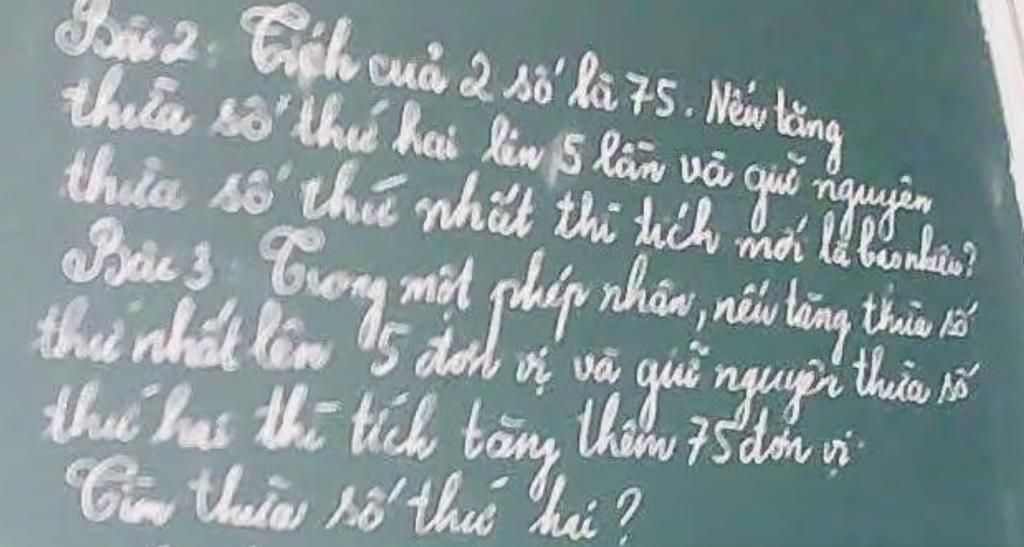 Bài 2: Tích cuả 2 số là 75. Nếu tăng
thừa số thứ hai lên 5 lần và giữ nguyên
thừa số thứ nhất thì tích mới là bao nhiêu?
Bài 3: Trong một phép nhân, nếu tăng thừa số
thứ nhất lên 5 đơn vị và giữ nguyên thừa số
thứ hai thì tích tăng thêm 75 đơn vị.
Tìm thừa số thứ hai?